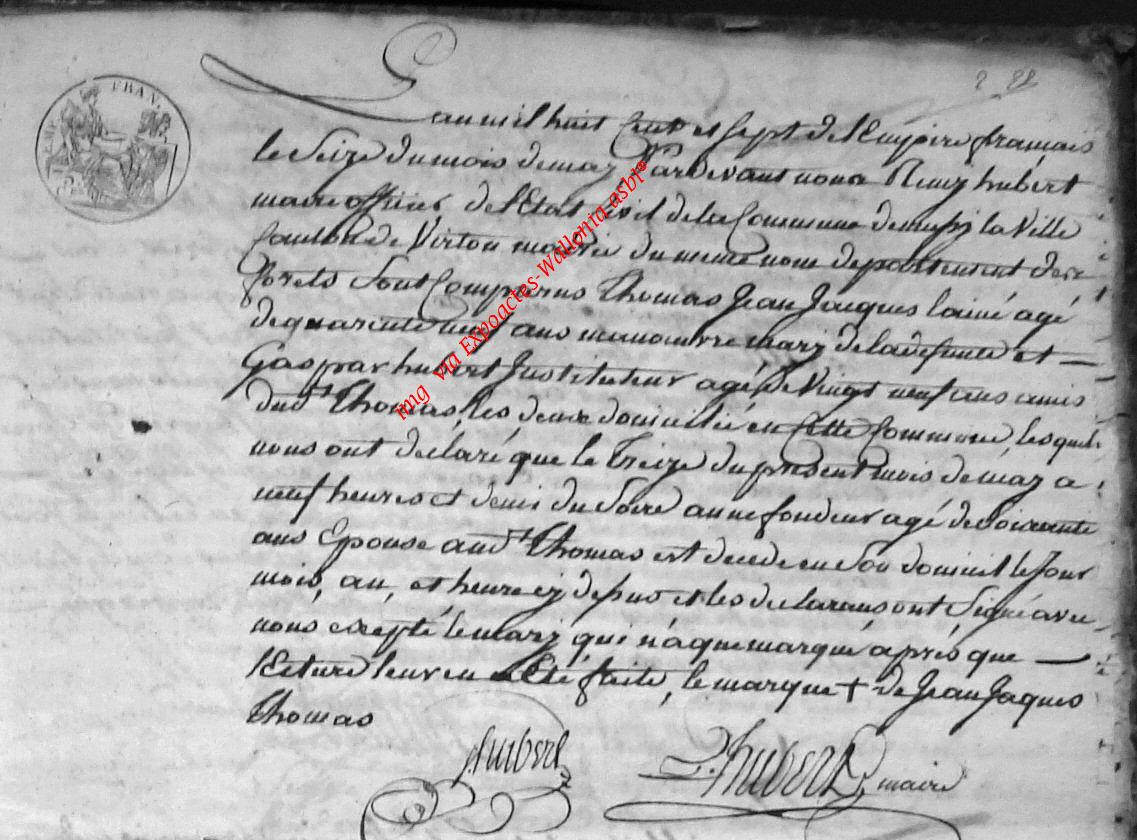 FRAN.
2 88
L'an mil huit Cent et Sept de l'Empire français
le Seize du mois de may Pardevant nous Remy hubert
maire officier de l'Etat Civil de la Commune de musy la Ville
Canton de Virton mairie du meme nom departement des
forets Sont Comparus Thomas Jean Jacques lainé agé
de quarante neuf ans manoeuvre mary de la defunte et —
Gaspar hubert Instituteur agé de Vingt neuf ans amis
dudt Thomas, les deux domicilié en Cette Commune, lesquels
nous ont declaré que le Treize du present mois de may a
neuf heures et demi du Soire anne fondeur agé de Soixante
ans Epouse audt Thomas est decedé en Son domicil le jour
mois, an, et heure cy dessus et les declarans ont Signé avec
nous excepté le mary qui n'a que marqué après que —
lecture leur en a Eté faite, le marque + de Jean Jaques
Thomas
hubert
R. hubert maire
img via Expoactes-Wallonia asbl